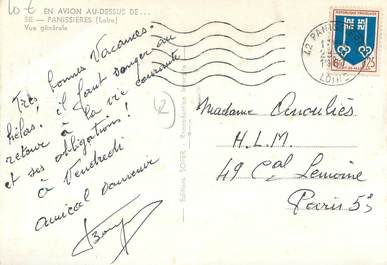 EN AVION AU-DESSUS DE...
SIE — PANISSIERES (Loire)
Vue générale
Très bonnes Vacances.
hélas. il faut songer au
retour à la vie courante
et ses obligations !
à Vendredi
amical souvenir
42
Editions SOFER
REPUBLIQUE FRANÇAISE
42 PANISSIERES
LOIRE
Madame Anouliès
H.L.M.
49 Cal Lemoine
Paris 5e